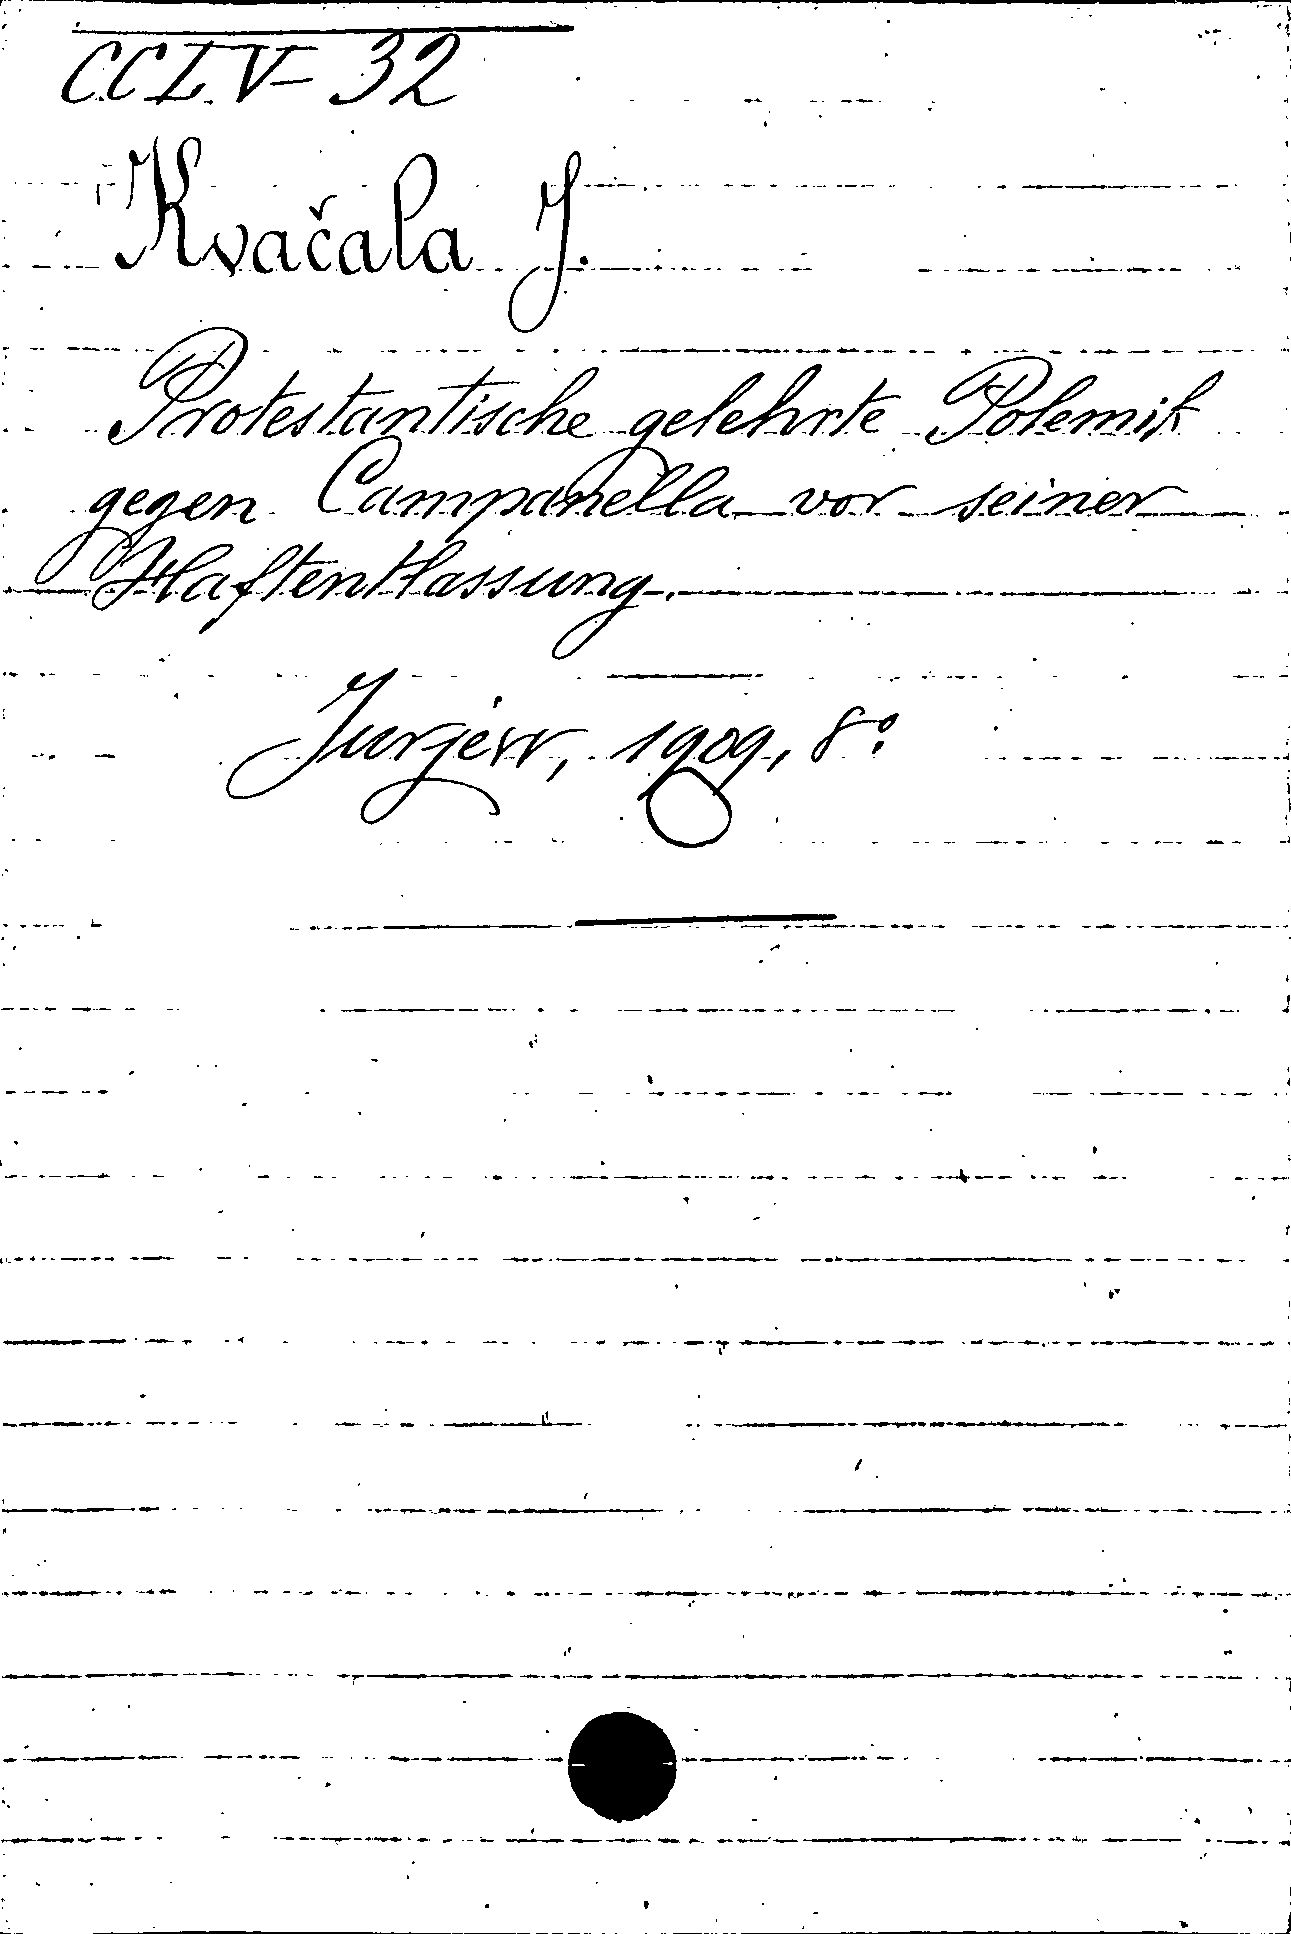 CCLV-32
Kvačala J.
Protestantische gelehrte Polemik
gegen Campanella vor seiner
Haftentlassung.
Jurjew, 1909, 8°